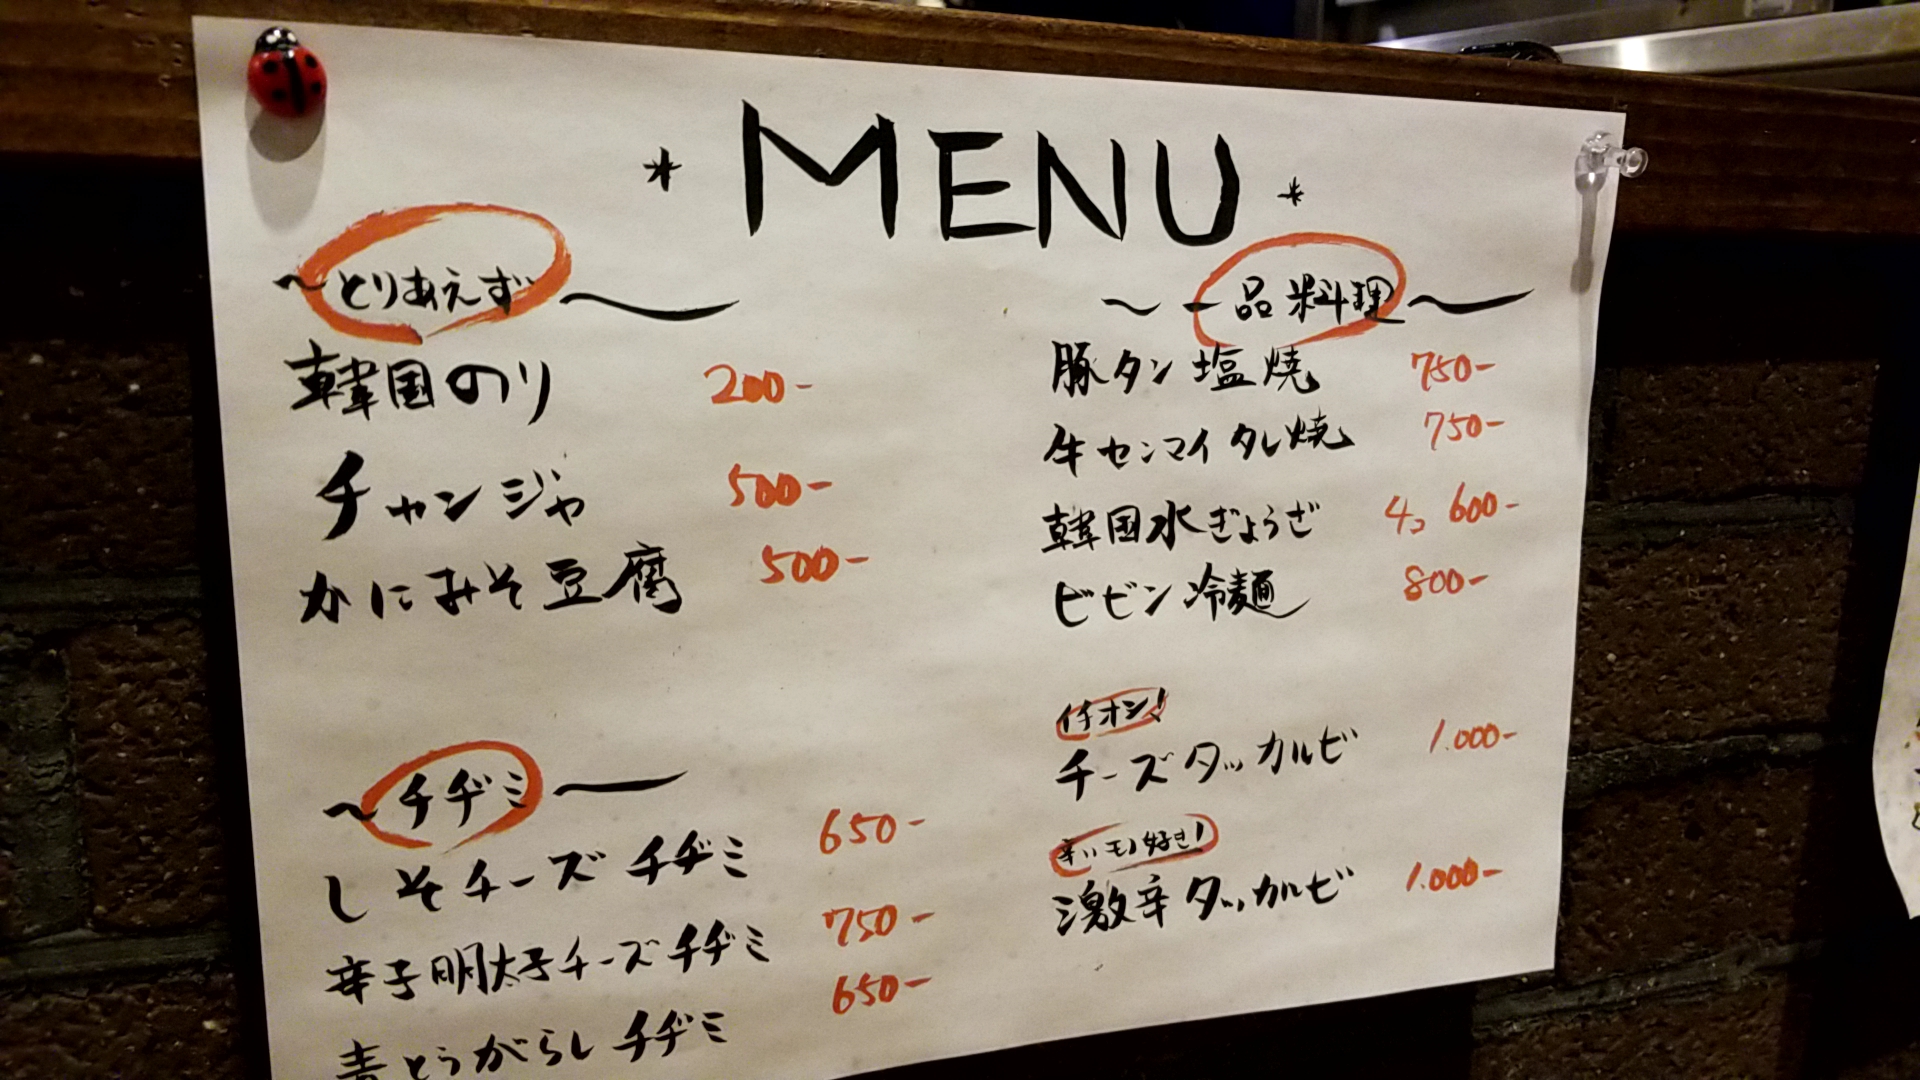 * MENU *
～とりあえず～
韓国のり 200-
チャンジャ 500-
かにみそ豆腐 500-
～チヂミ～
しそチーズチヂミ 650-
辛子明太子チーズチヂミ 750-
青とうがらしチヂミ 650-
～一品料理～
豚タン塩焼 750-
牛センマイタレ焼 750-
韓国水ぎょうざ 4コ 600-
ビビン冷麺 800-
イチオシ!
チーズタッカルビ 1.000-
辛いモノ好き!
激辛タッカルビ 1.000-